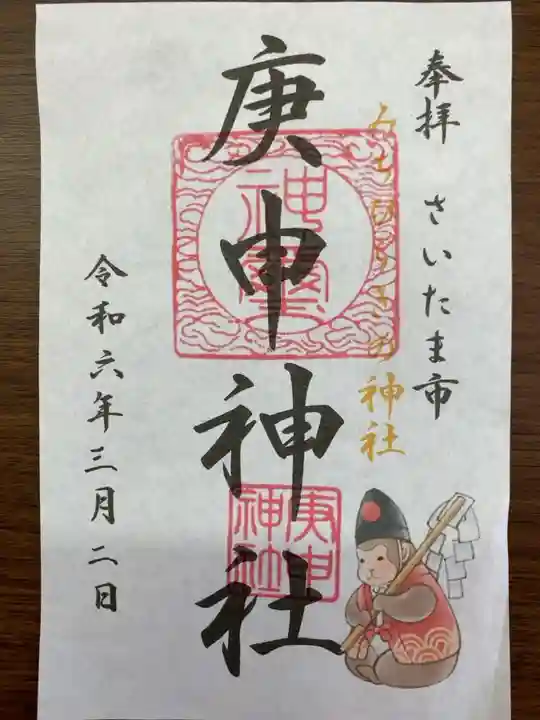 奉拝 さいたま市
みちひらきの神社
庚申神社
神璽
庚申神社
令和六年三月二日